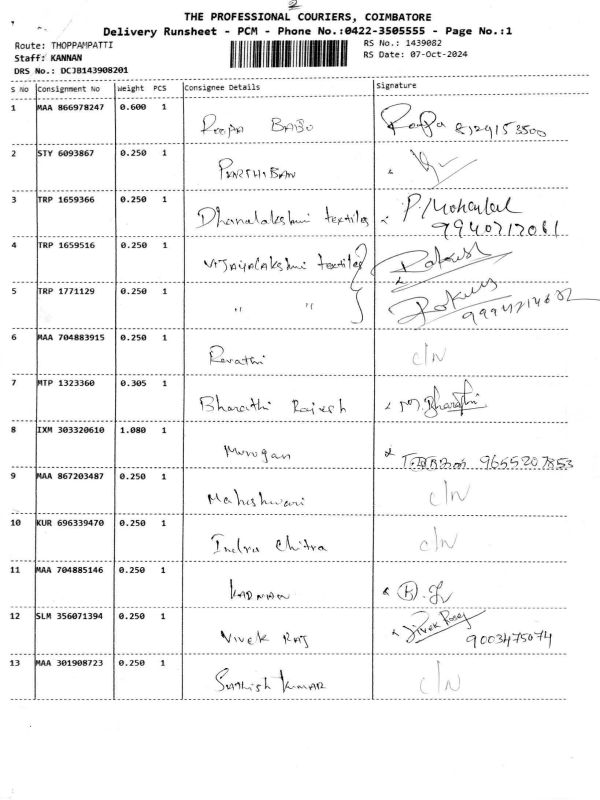 2
THE PROFESSIONAL COURIERS, COIMBATORE
Delivery Runsheet - PCM - Phone No.:0422-3505555 - Page No.:1
Route: THOPPAMPATTI
RS No.: 1439082
Staff: KANNAN
RS Date: 07-Oct-2024
DRS No.: DCJB143908201
S No Consignment No Weight PCS Consignee Details Signature
1 MAA 866978247 0.600 1 Roopa BABU
2 STY 6093867 0.250 1 PARTHIBAN
3 TRP 1659366 0.250 1 Dhanalakshmi textiles P. Mohanlal
9940717061
4 TRP 1659516 0.250 1 VIJAYALAKSHMI textiles Rakesh
5 TRP 1771129 0.250 1 " "
6 MAA 704883915 0.250 1 Revathi C/N
7 MTP 1323360 0.305 1 Bharathi Rajesh M. Bharathi
8 IXM 303320610 1.080 1 Murugan 9655207853
9 MAA 867203487 0.250 1 Maheshwari C/N
10 KUR 696339470 0.250 1 Indra Chitra C/N
11 MAA 704885146 0.250 1
12 SLM 356071394 0.250 1 VIVEK RAJ
9003475074
13 MAA 301908723 0.250 1 Sathish Kumar C/N